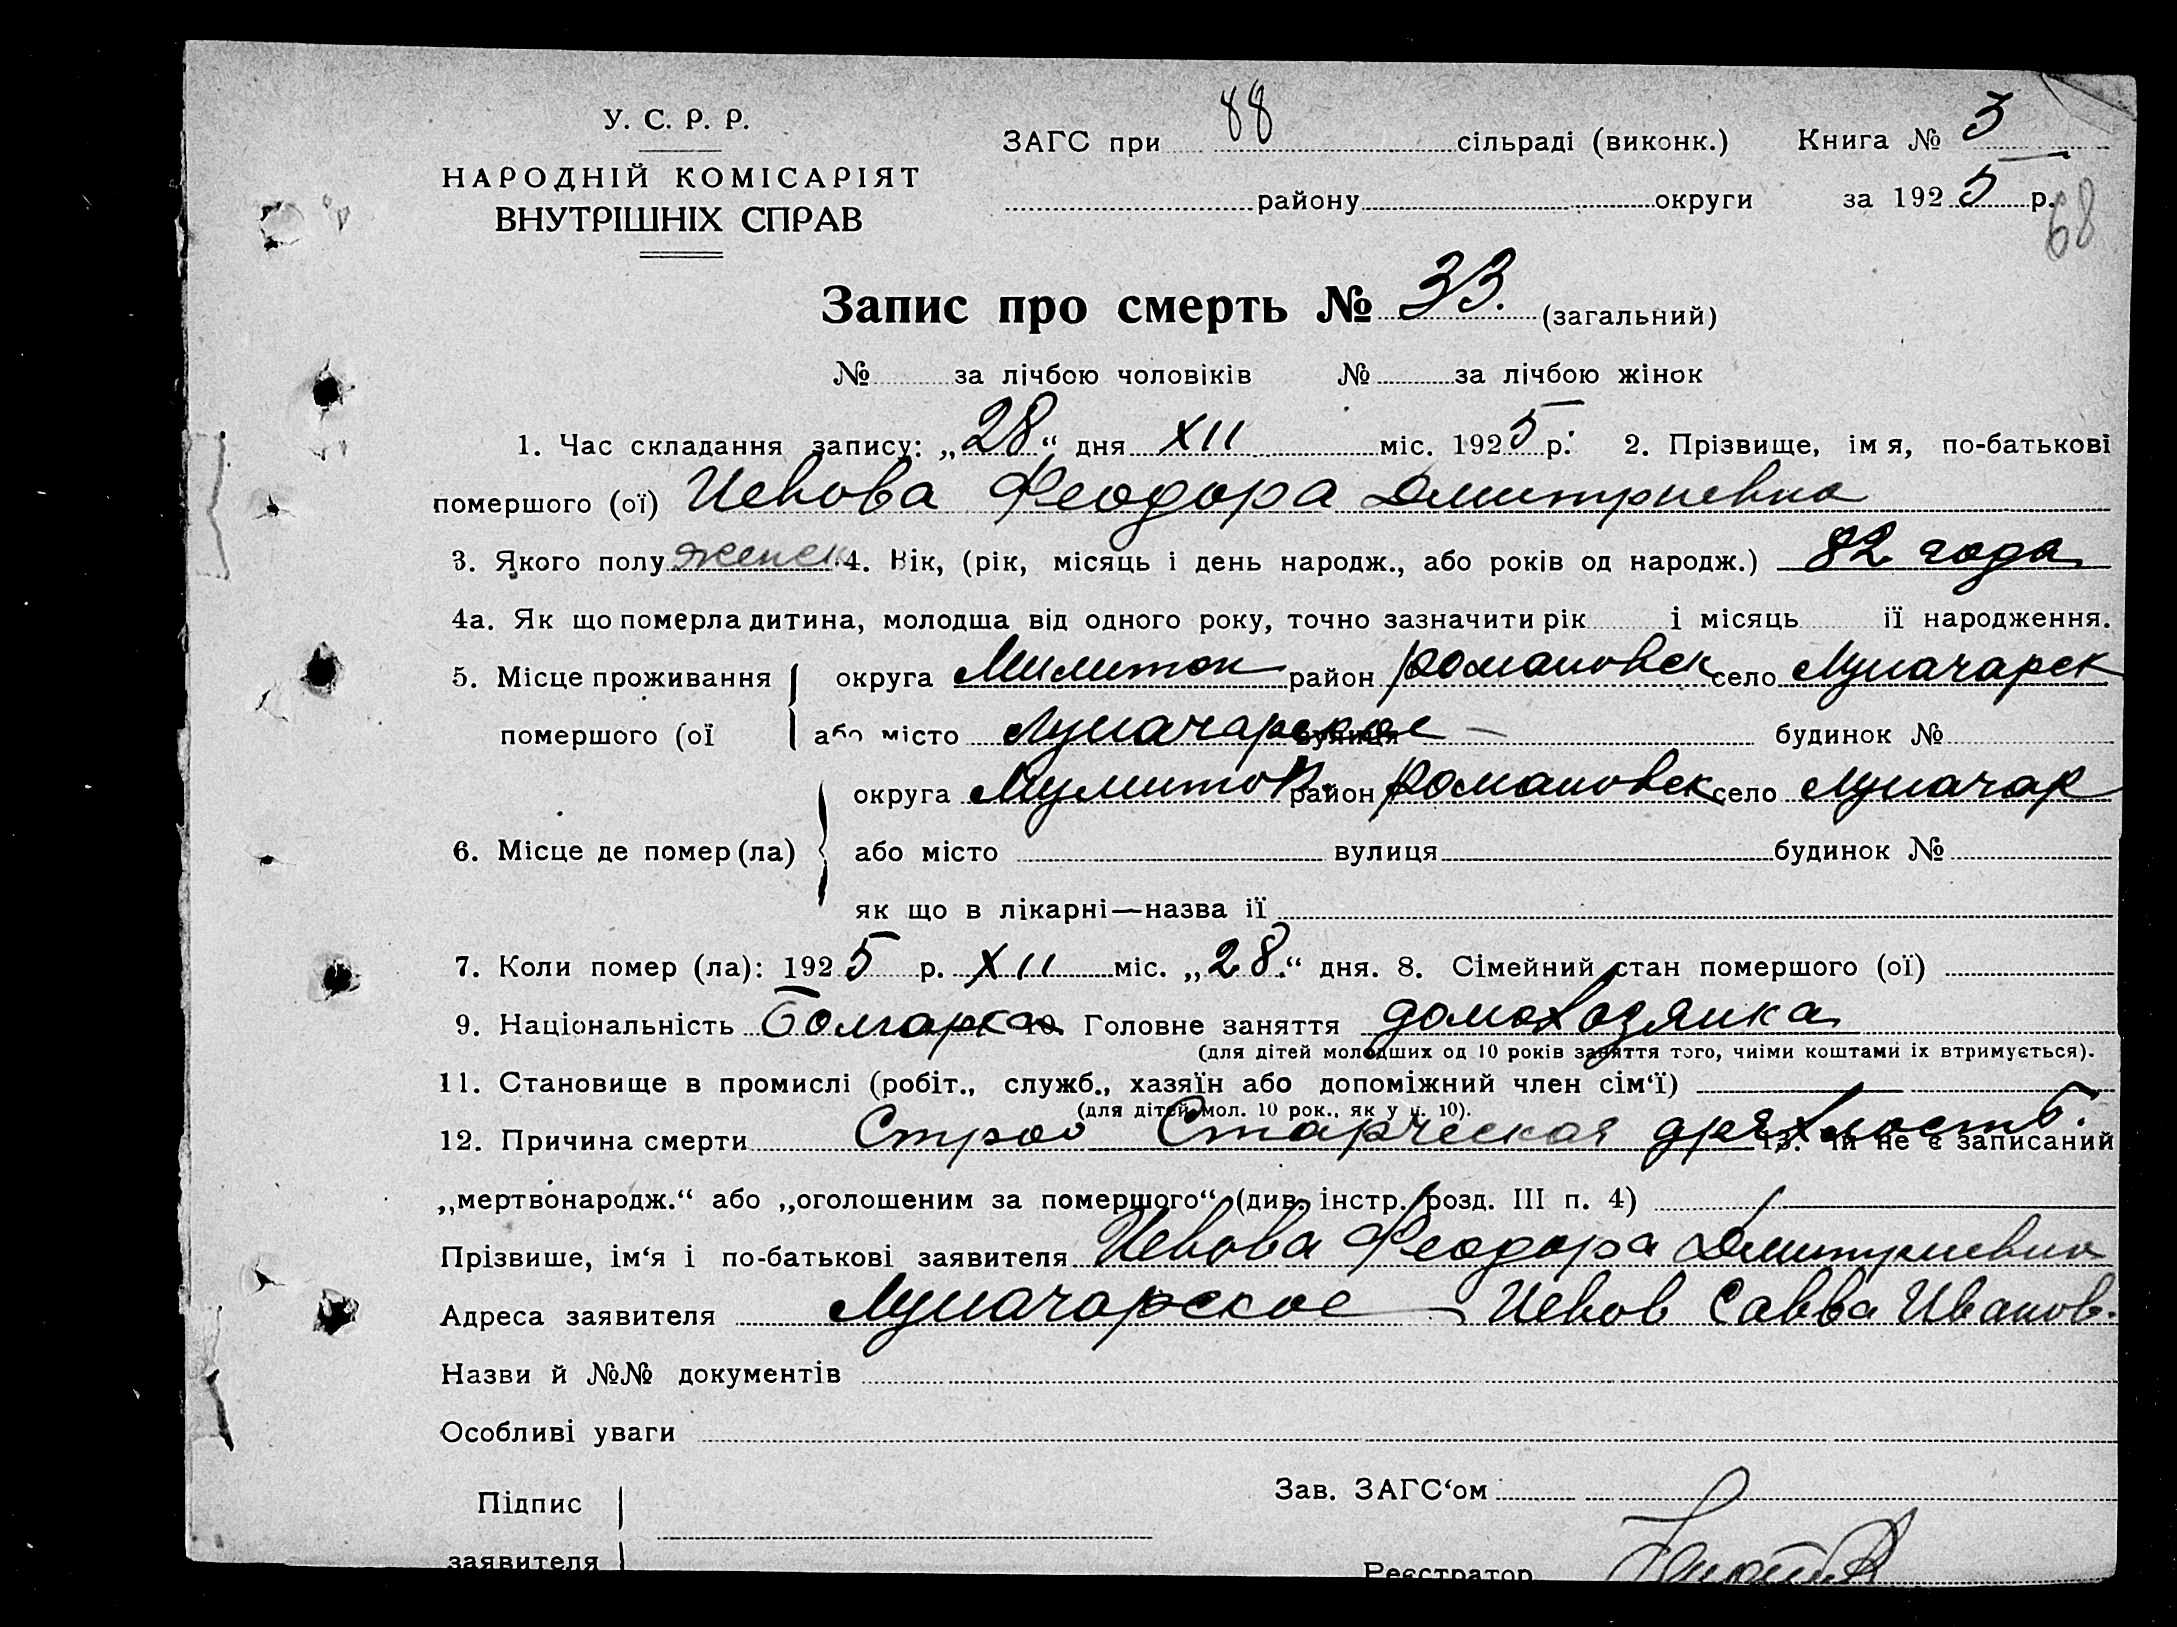 У. С. Р. Р.
НАРОДНІЙ КОМІСАРІЯТ
ВНУТРІШНІХ СПРАВ
ЗАГС при 88 сільраді (виконк.) Книга № 3
району округи за 1925 р.
68
Запис про смерть № 33. (загальний)
№ за лічбою чоловіків № за лічбою жінок
1. Час складання запису: „28“ дня XII міс. 1925 р. 2. Прізвище, імя, по-батькові
помершого (ої) Чевова Феодора Дмитриевна
3. Якого полу женск 4. Вік, (рік, місяць і день народж., або років од народж.) 82 года
4а. Як що померла дитина, молодша від одного року, точно зазначити рік і місяць її народження.
5. Місце проживання округа Милитоп район Романовск село Луначарск
помершого (ої або місто Луначарское вулиця — будинок №
округа Мумитоп. район Романовск село Луначар
6. Місце де помер (ла) або місто вулиця будинок №
як що в лікарні—назва її
7. Коли помер (ла): 1925 р. XII міс. „28.“ дня. 8. Сімейний стан помершого (ої)
9. Національність Болгарка 10. Головне заняття домохозянка
(для дітей молодших од 10 років заняття того, чиїми коштами їх втримується).
11. Становище в промислі (робіт., служб., хазяїн або допоміжний член сім‘ї)
(для дітей мол. 10 рок., як у п. 10).
12. Причина смерти Старческая дряхлость. 13. Чи не є записаний
„мертвонародж.“ або „оголошеним за помершого“ (див. інстр. розд. III п. 4)
Прізвише, ім‘я і по-батькові заявителя Чевова Феодора Дмитриевна
Адреса заявителя Луначарское Чевов Савва Иванов.
Назви й №№ документів
Особливі уваги
Підпис
заявителя
Зав. ЗАГС‘ом
Реєстратор